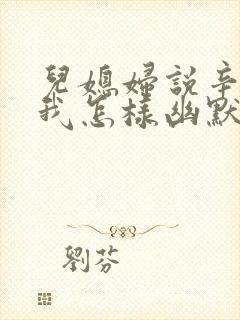 兒媳婦説辛
我怎樣幽默
劉芬